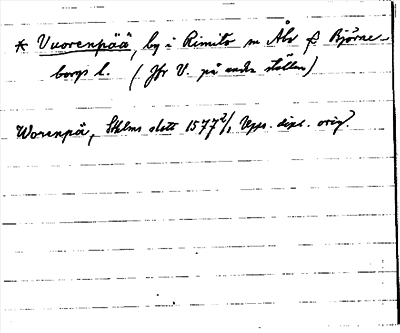 * Vuorenpää, by i Rimito sn Åbo & Björne-
borgs l. (Jfr V. på andra ställen)
Worenpä, Sthlms slott 1577 2/1, Upps. dipl. orig.